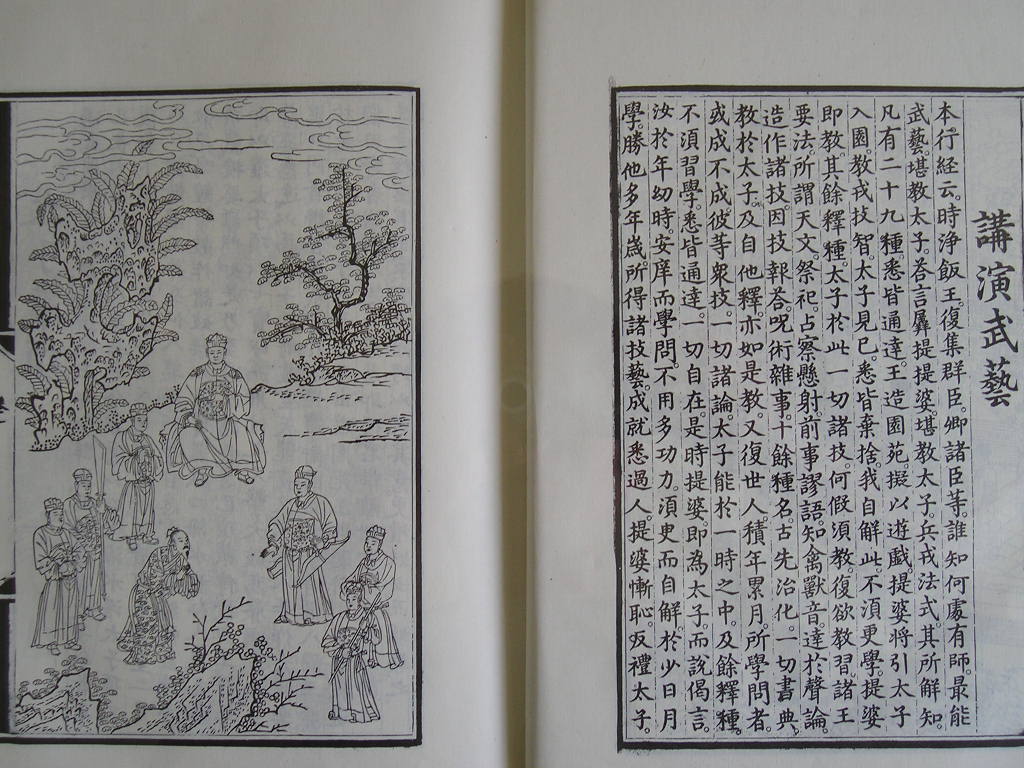 講演武藝
本行經云。時淨飯王。復集群臣。卿諸臣等。誰知何處有師。最能
武藝。堪教太子。荅言羼提提婆。堪教太子。兵戎法式其所解知。
凡有二十九種。悉皆通達。王造園苑。擬以遊戲。提婆將引太子
入園。教戎技智。太子見已。悉皆棄捨。我自解此。不須更學。提婆
即教其餘釋種。太子於此一切諸技。何假須教。復欲教習。諸王
要法。所謂天文。祭祀。占察。懸射。前事謬語。知禽獸音。達於聲論。
造作諸技。因技報荅。呪術雜事。十餘種名。古先治化。一切書典
教於太子。及自他釋。亦如是教。又復世人。積年累月。所學問者。
或成不成。彼等衆技。一切諸論。太子能於一時之中。及餘釋種。
不須習學。悉皆通達。一切自在。是時提婆。即為太子。而說偈言。
汝於年幼時。安庠而學問。不用多功力。須臾而自解。於少日月
學。勝他多年歲。所得諸技藝。成就悉過人。提婆慚恥。頂禮太子。